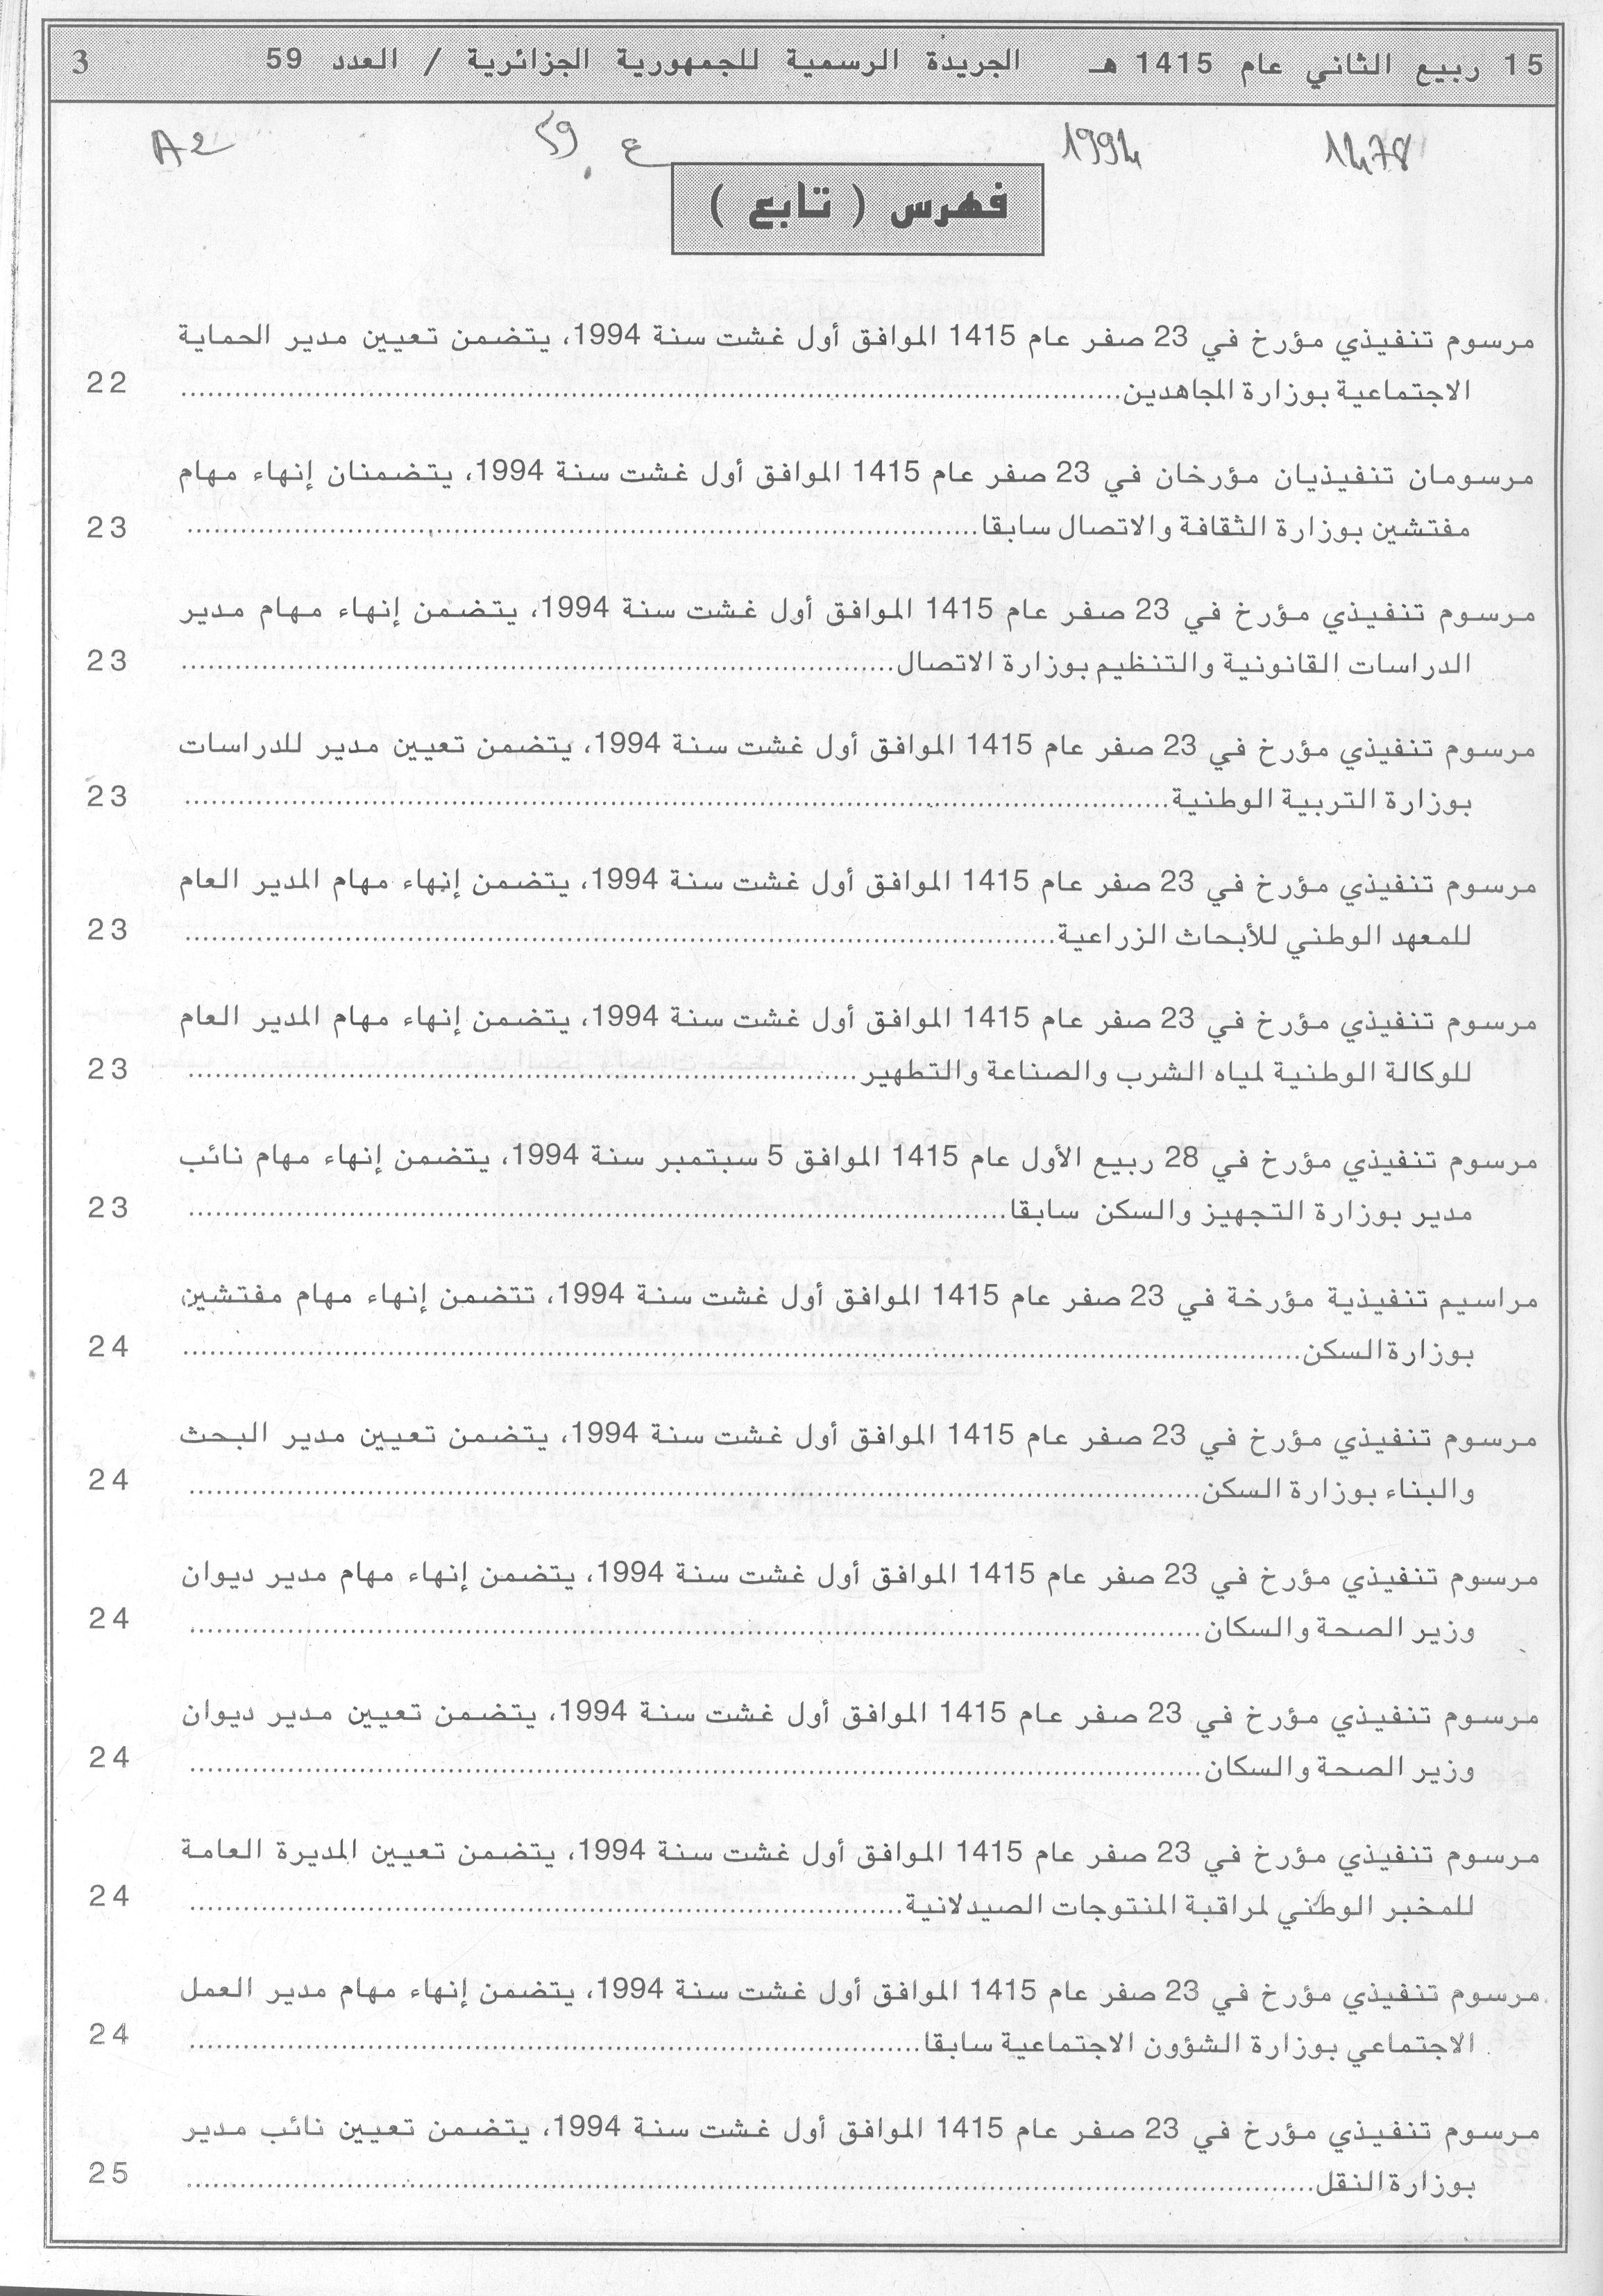 15 ربيع الثاني عام 1415 هـ الجريدة الرسمية للجمهورية الجزائرية / العدد 59 3
1478 1994 ع. 59 A2
فهرس ( تابع )
مرسوم تنفيذي مؤرخ في 23 صفر عام 1415 الموافق أول غشت سنة 1994، يتضمن تعيين مدير الحماية
الاجتماعية بوزارة المجاهدين........ 22
مرسومان تنفيذيان مؤرخان في 23 صفر عام 1415 الموافق أول غشت سنة 1994، يتضمنان إنهاء مهام
مفتشين بوزارة الثقافة والاتصال سابقا........ 23
مرسوم تنفيذي مؤرخ في 23 صفر عام 1415 الموافق أول غشت سنة 1994، يتضمن إنهاء مهام مدير
الدراسات القانونية والتنظيم بوزارة الاتصال........ 23
مرسوم تنفيذي مؤرخ في 23 صفر عام 1415 الموافق أول غشت سنة 1994، يتضمن تعيين مدير للدراسات
بوزارة التربية الوطنية........ 23
مرسوم تنفيذي مؤرخ في 23 صفر عام 1415 الموافق أول غشت سنة 1994، يتضمن إنهاء مهام المدير العام
للمعهد الوطني للأبحاث الزراعية........ 23
مرسوم تنفيذي مؤرخ في 23 صفر عام 1415 الموافق أول غشت سنة 1994، يتضمن إنهاء مهام المدير العام
للوكالة الوطنية لمياه الشرب والصناعة والتطهير........ 23
مرسوم تنفيذي مؤرخ في 28 ربيع الأول عام 1415 الموافق 5 سبتمبر سنة 1994، يتضمن إنهاء مهام نائب
مدير بوزارة التجهيز والسكن سابقا........ 23
مراسيم تنفيذية مؤرخة في 23 صفر عام 1415 الموافق أول غشت سنة 1994، تتضمن إنهاء مهام مفتشين
بوزارة السكن........ 24
مرسوم تنفيذي مؤرخ في 23 صفر عام 1415 الموافق أول غشت سنة 1994، يتضمن تعيين مدير البحث
والبناء بوزارة السكن........ 24
مرسوم تنفيذي مؤرخ في 23 صفر عام 1415 الموافق أول غشت سنة 1994، يتضمن إنهاء مهام مدير ديوان
وزير الصحة والسكان........ 24
مرسوم تنفيذي مؤرخ في 23 صفر عام 1415 الموافق أول غشت سنة 1994، يتضمن تعيين مدير ديوان
وزير الصحة والسكان........ 24
مرسوم تنفيذي مؤرخ في 23 صفر عام 1415 الموافق أول غشت سنة 1994، يتضمن تعيين المديرة العامة
للمخبر الوطني لمراقبة المنتوجات الصيدلانية........ 24
مرسوم تنفيذي مؤرخ في 23 صفر عام 1415 الموافق أول غشت سنة 1994، يتضمن إنهاء مهام مدير العمل
الاجتماعي بوزارة الشؤون الاجتماعية سابقا........ 24
مرسوم تنفيذي مؤرخ في 23 صفر عام 1415 الموافق أول غشت سنة 1994، يتضمن تعيين نائب مدير
بوزارة النقل........ 25